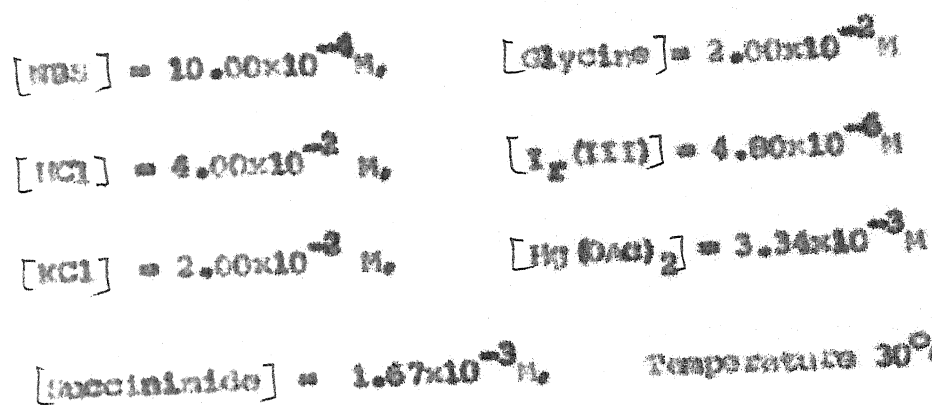 [NBS] = 10.00x10^-4 M, [Glycine] = 2.00x10^-2 M
[HCl] = 4.00x10^-2 M, [Ir(III)] = 4.80x10^-6 M
[KCl] = 2.00x10^-3 M, [Hg(OAc)2] = 3.34x10^-3 M
[Succinimide] = 1.67x10^-3 M, Temperature 30°